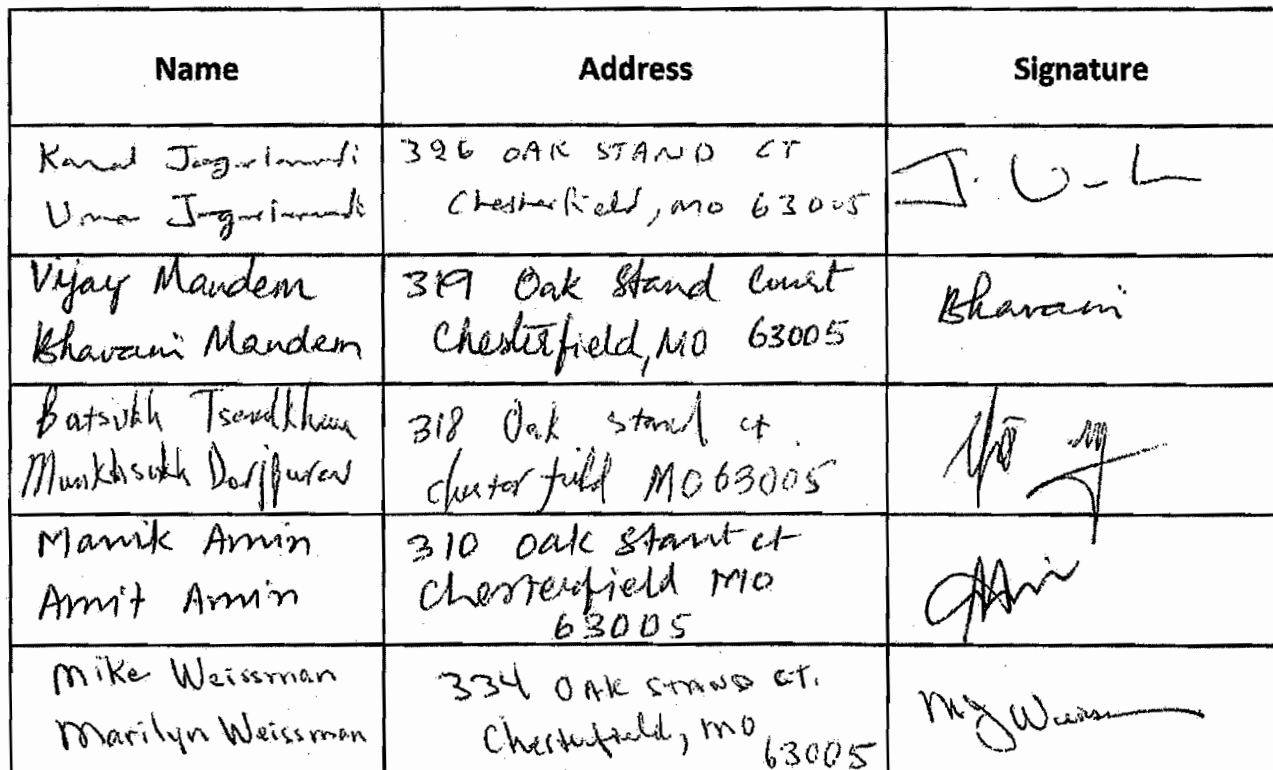 Name Address Signature
Uma
326 OAK STAND CT
Chesterfield, MO 63005
J. U
Vijay Mandem
Bhavani Mandem
319 Oak Stand Court
Chesterfield, MO 63005
Bhavani
Batsukh
Munkhsukh Dorjpurev
318 Oak stand ct.
chesterfield MO 63005
Manik Amin
Amit Amin
310 Oak Stant ct
Chesterfield MO
63005
Mike Weissman
Marilyn Weissman
334 OAK STAND CT.
Chesterfield, MO
63005